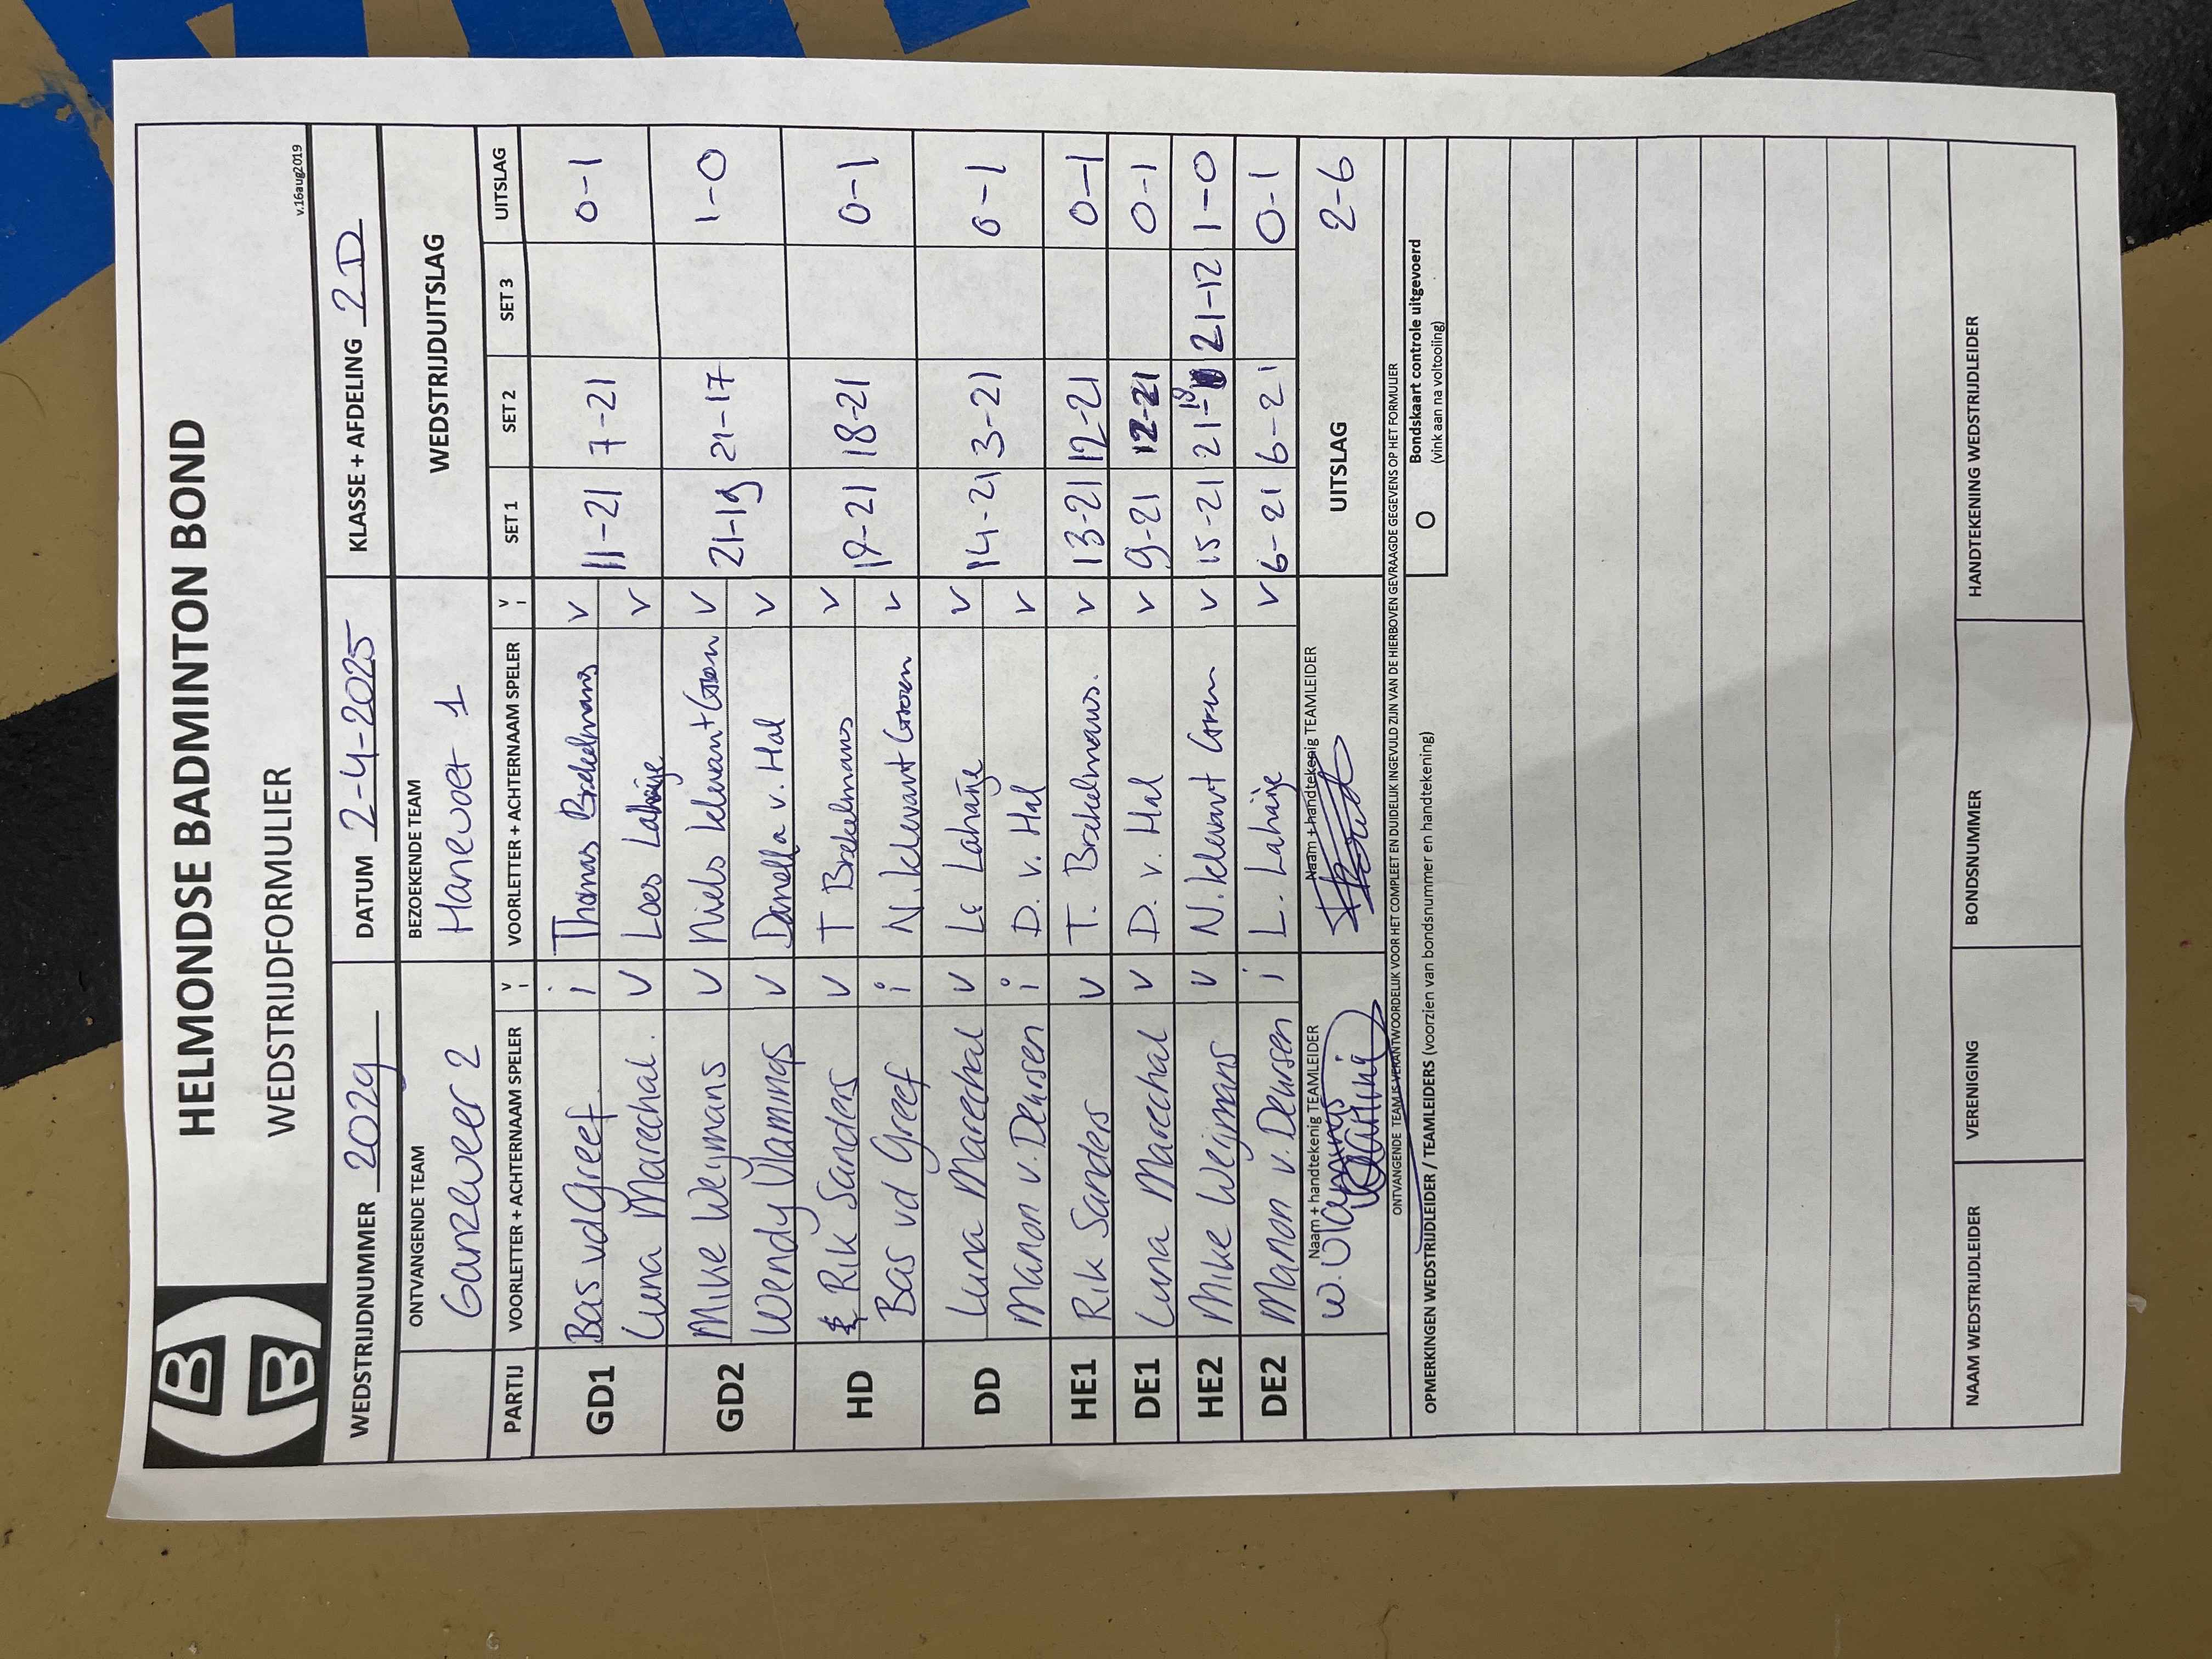 HELMONDSE BADMINTON BOND
WEDSTRIJDFORMULIER
v.16aug2019
WEDSTRIJDNUMMER 2029 DATUM 2-4-2025 KLASSE + AFDELING 2D
ONTVANGENDE TEAM BEZOEKENDE TEAM WEDSTRIJDUITSLAG
Ganzeveer 2 Hanevoet 1
PARTIJ VOORLETTER + ACHTERNAAM SPELER V I VOORLETTER + ACHTERNAAM SPELER V I SET 1 SET 2 SET 3 UITSLAG
GD1 Bas vd Greef i Thomas Brekelmans v 11-21 7-21 0-1
Luna Marechal. v Loes Lahaije v
GD2 Mike Weijmans v Niels klevant Groen v 21-19 21-17 1-0
Wendy Vlamings v Danella v. Hal v
HD Rik Sanders v T Brekelmans v 19-21 18-21 0-1
Bas vd Greef i N. klevant Groen v
DD Luna Marechal v L Lahaije v 14-21 3-21 0-1
Manon v. Deursen i D. v. Hal v
HE1 Rik Sanders v T. Brekelmans. v 13-21 12-21 0-1
DE1 Luna Marechal v D. v. Hal v 9-21 12-21 0-1
HE2 Mike Weijmans v N. klevant Groen v 15-21 21-18 21-12 1-0
DE2 Manon v. Deursen i L. Lahaije v 6-21 6-21 0-1
Naam + handtekenig TEAMLEIDER Naam + handtekenig TEAMLEIDER UITSLAG 2-6
W. Vlamings
ONTVANGENDE TEAM IS VERANTWOORDELIJK VOOR HET COMPLEET EN DUIDELIJK INGEVULD ZIJN VAN DE HIERBOVEN GEVRAAGDE GEGEVENS OP HET FORMULIER
OPMERKINGEN WEDSTRIJDLEIDER / TEAMLEIDERS (voorzien van bondsnummer en handtekening) O Bondskaart controle uitgevoerd
(vink aan na voltooiing)
NAAM WEDSTRIJDLEIDER VERENIGING BONDSNUMMER HANDTEKENING WEDSTRIJDLEIDER